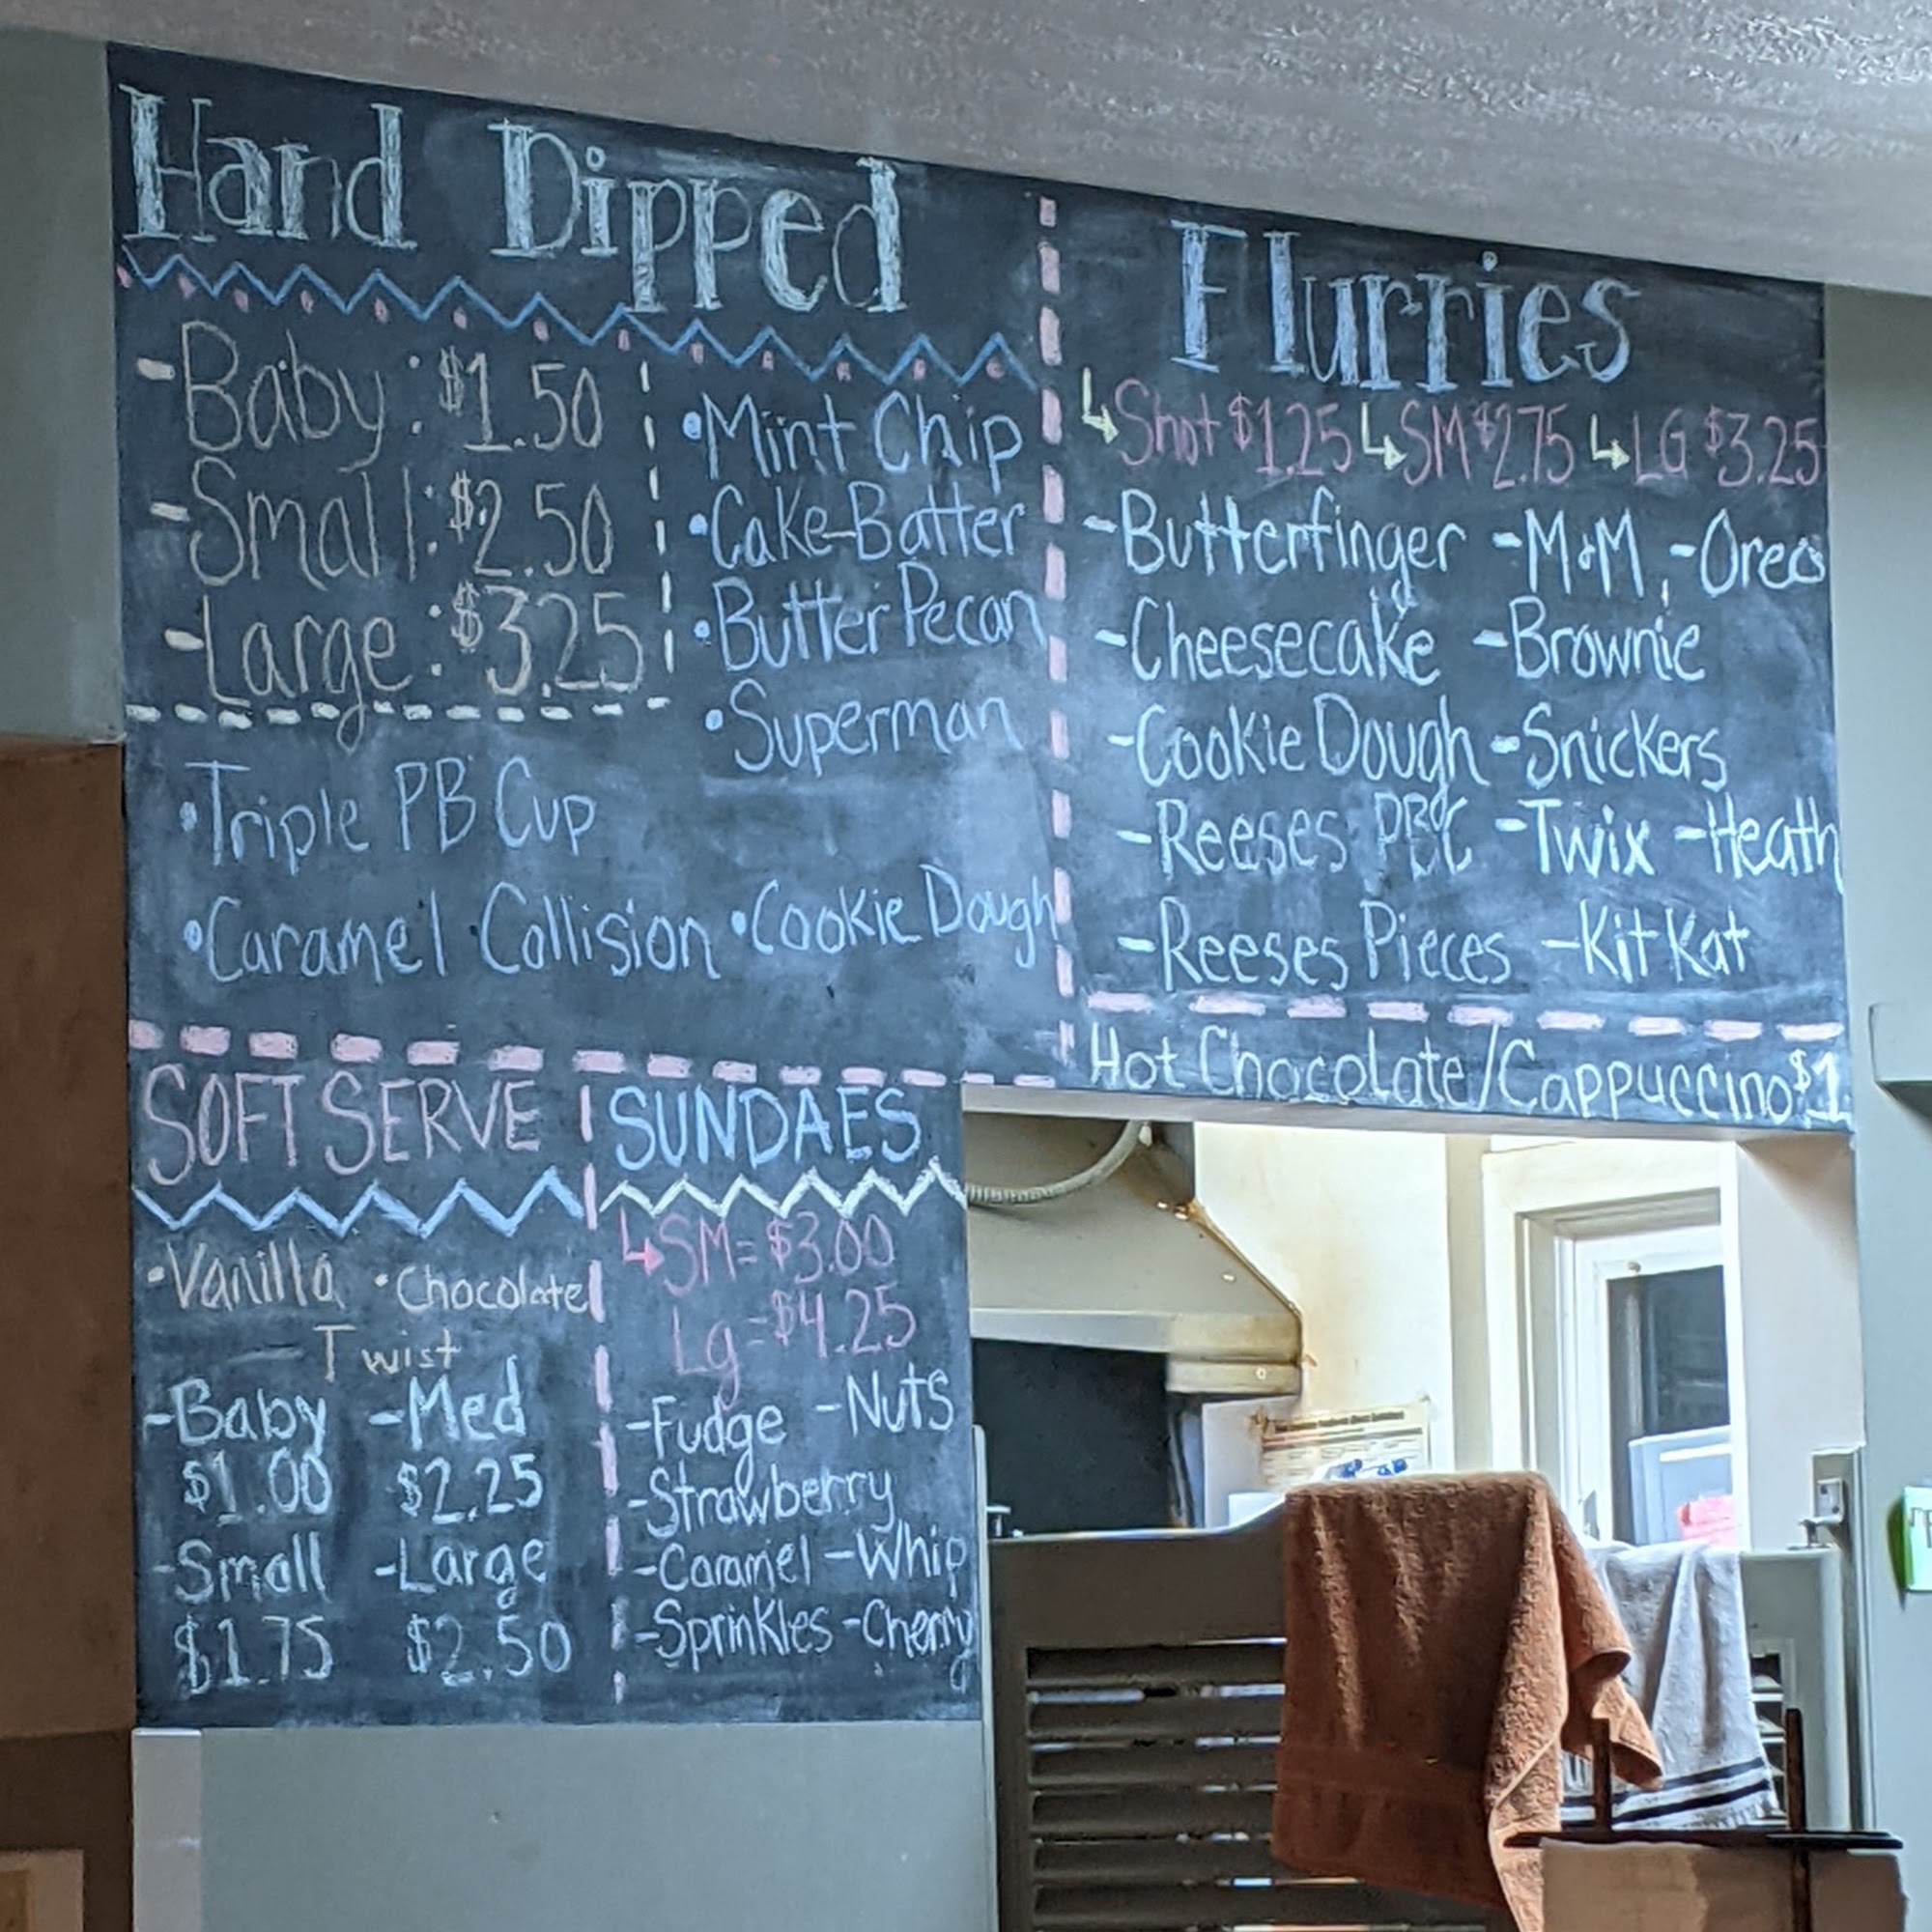 Hand Dipped
-Baby: $1.50
-Small: $2.50
-Large: $3.25
•Mint Chip
•Cake Batter
•Butter Pecan
•Superman
•Triple PB Cup
•Caramel Collision •Cookie Dough
Flurries
Shot $1.25 SM $2.75 LG $3.25
-Butterfinger -M&M, -Oreo
-Cheesecake -Brownie
-Cookie Dough -Snickers
-Reeses PBC -Twix -Heath
-Reeses Pieces -Kit Kat
Hot Chocolate/Cappuccino $1
SOFT SERVE
•Vanilla •Chocolate
Twist
-Baby -Med
$1.00 $2.25
-Small -Large
$1.75 $2.50
SUNDAES
SM= $3.00
Lg = $4.25
-Fudge -Nuts
-Strawberry
-Caramel -Whip
-Sprinkles -Cherry